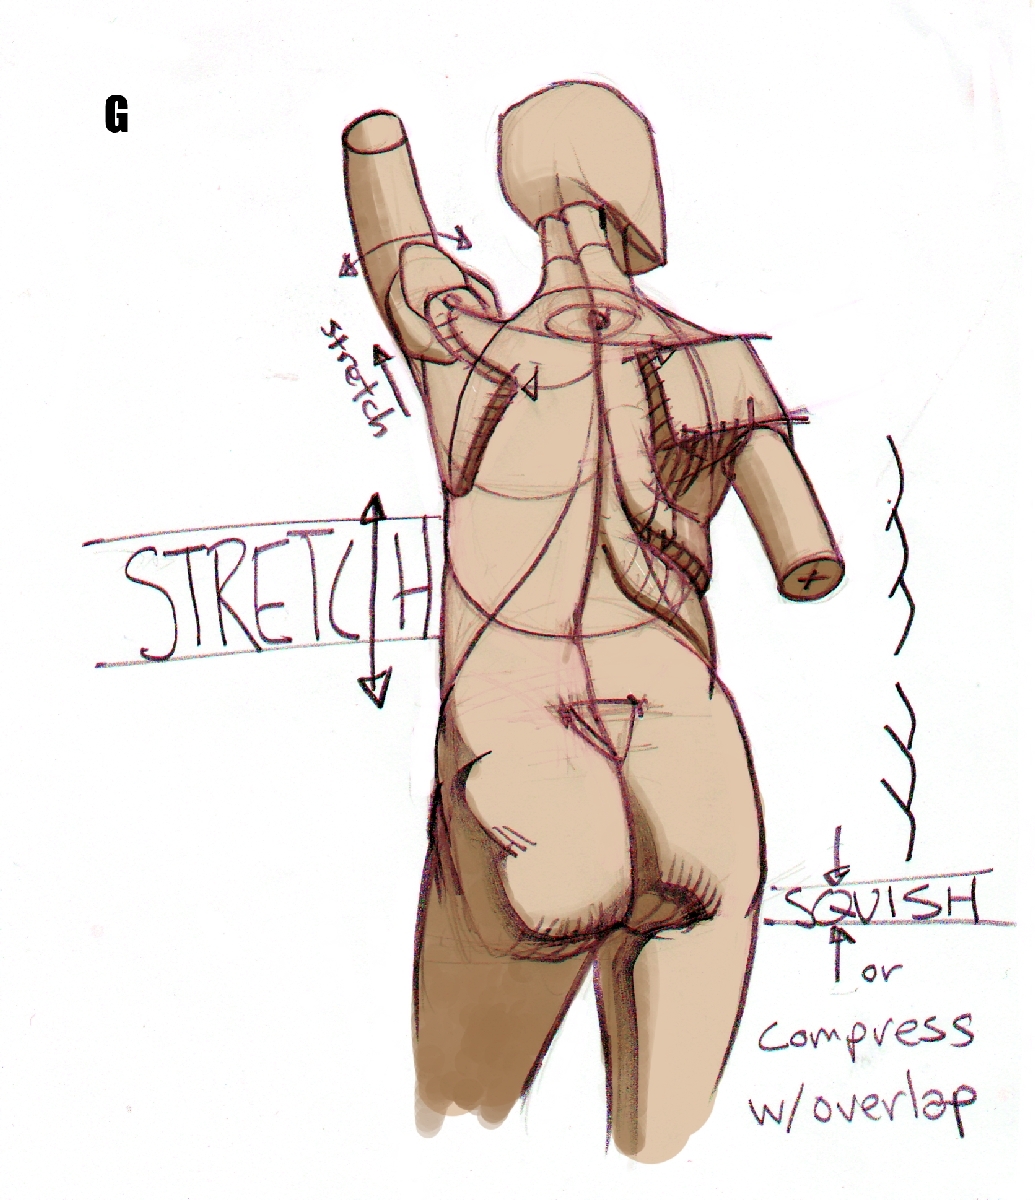 G
stretch
STRETCH
SQUISH
or
compress
w/overlap